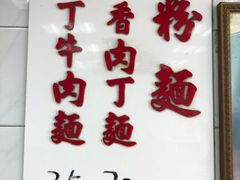 粉麵
香肉丁麵
丁牛肉麵